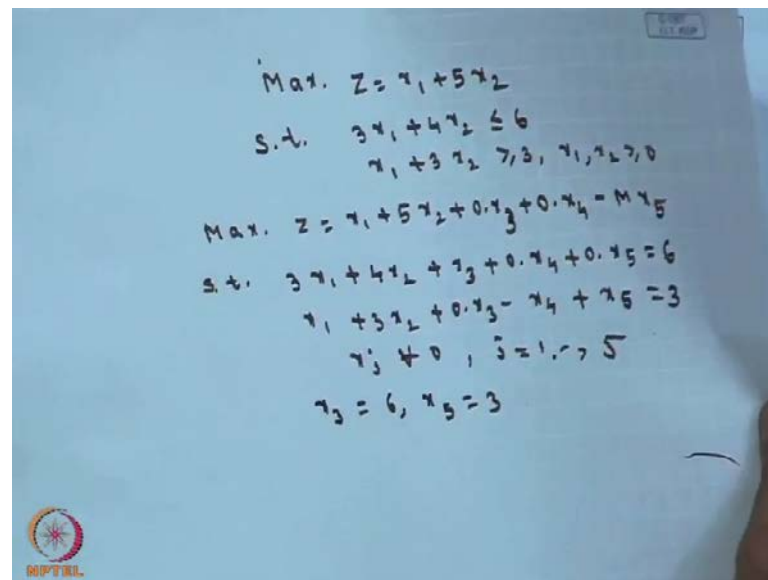 Max. Z = x₁ + 5x₂
s.t. 3x₁ + 4x₂ ≤ 6
x₁ + 3x₂ ≥ 3, x₁, x₂ ≥ 0
Max. Z = x₁ + 5x₂ + 0.x₃ + 0.x₄ - Mx₅
s.t. 3x₁ + 4x₂ + x₃ + 0.x₄ + 0.x₅ = 6
x₁ + 3x₂ + 0.x₃ - x₄ + x₅ = 3
x₃ = 6, x₅ = 3
NPTEL